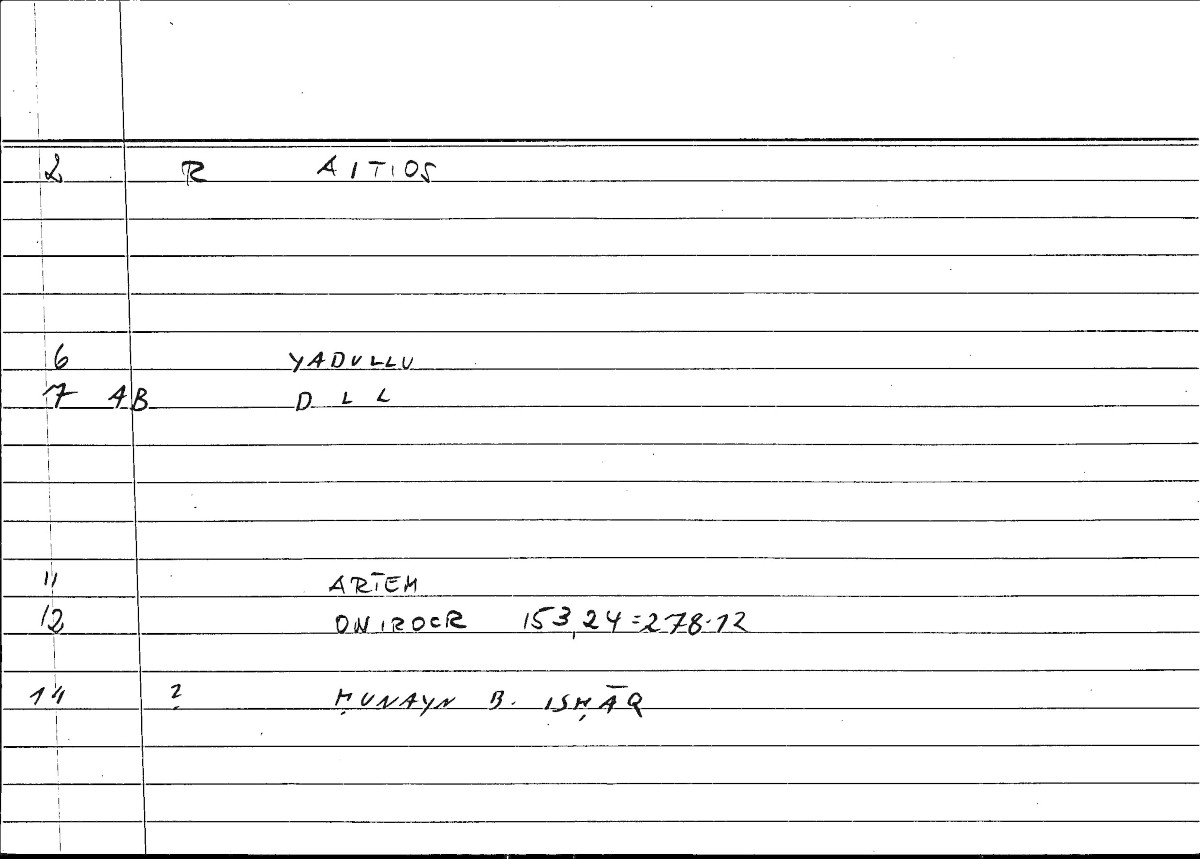 2 R AITIOS
6 YADULLU
7 AB D L L
11 ARTEM
12 ONIROCR 153,24=278.12
14 ? ḤUNAYN B. ISḤĀQ